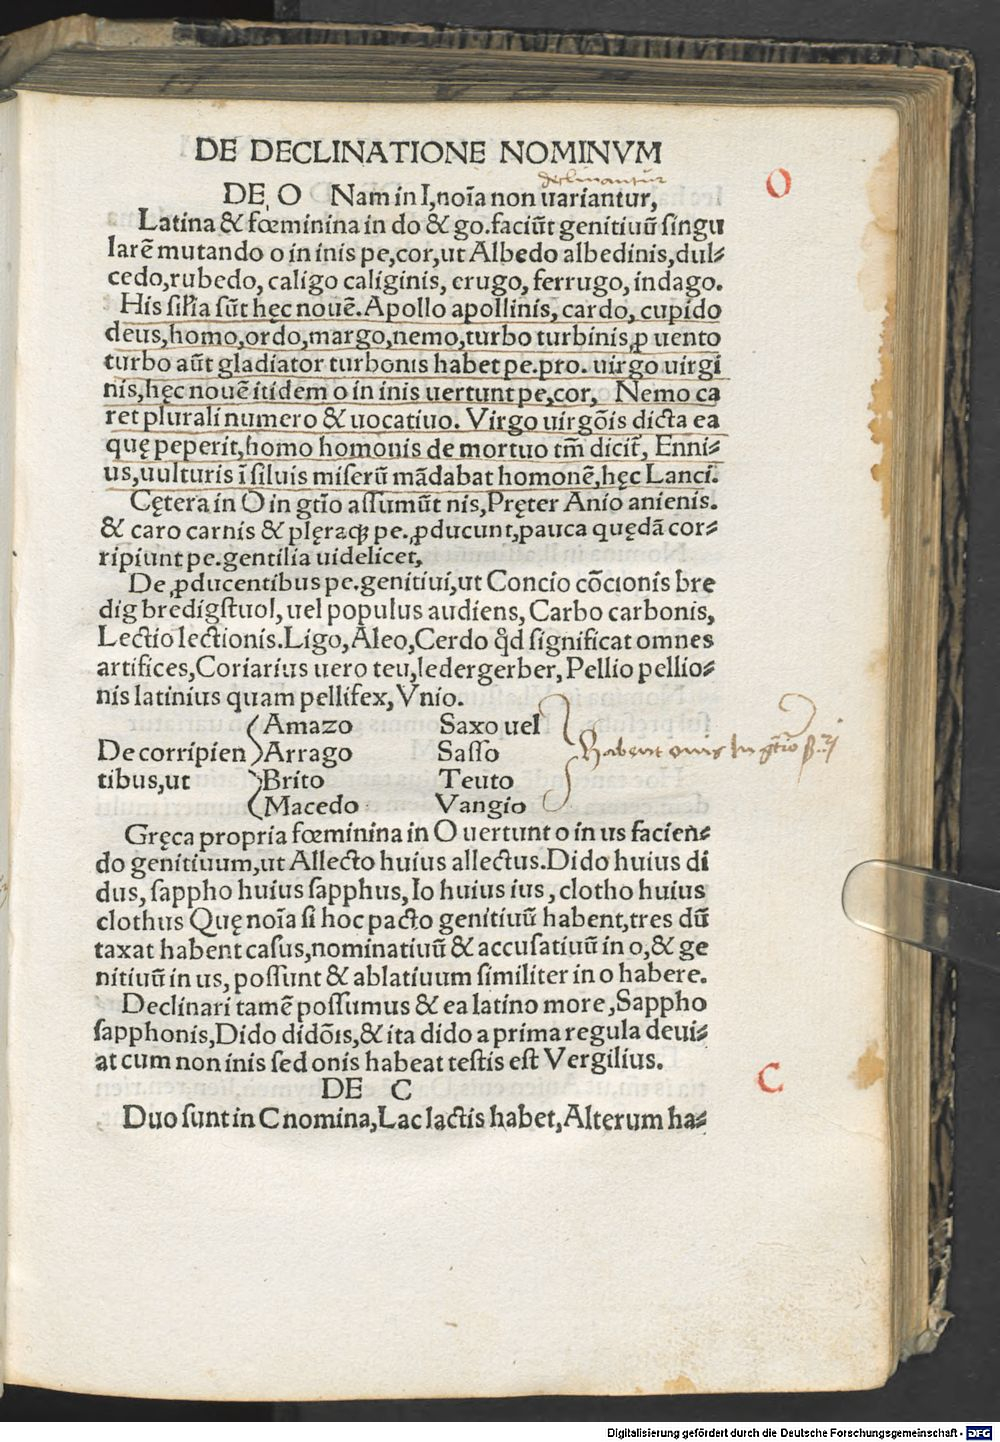 DE DECLINATIONE NOMINVM
declinantur
DE O Nam in I, noīa non uariantur,
O
Latina & fœminina in do & go. faciūt genitiuū singu
larē mutando o in inis pe, cor, ut Albedo albedinis, dul⸗
cedo, rubedo, caligo caliginis, erugo, ferrugo, indago.
His sił'ia sūt hęc nouē. Apollo apollinis, cardo, cupido
deus, homo, ordo, margo, nemo, turbo turbinis, ꝓ uento
turbo aūt gladiator turbonis habet pe. pro. uirgo uirgi
nis, hęc nouē itidem o in inis uertunt pe, cor, Nemo ca
ret plurali numero & uocatiuo. Virgo uirgōis dicta ea
quę peperit, homo homonis de mortuo tm̄ dicit̄, Enni⸗
us, uulturis ī siluis miserū mādabat homonē, hęc Lanci.
Cętera in O in gtīo assumūt nis, Pręter Anio anienis.
& caro carnis & plęraqꝫ pe. ꝓducunt, pauca quędā cor⸗
ripiunt pe. gentilia uidelicet,
De ꝓducentibus pe. genitiui, ut Concio cōcionis bre
dig bredigstuol, uel populus audiens, Carbo carbonis,
Lectio lectionis. Ligo, Aleo, Cerdo qd̄ significat omnes
artifices, Coriarius uero teu, ledergerber, Pellio pellio⸗
nis latinius quam pellifex, Vnio.
Amazo Saxo uel
De corripien Arrago Sasso
Habent onis in gtīo
tibus, ut Brito Teuto
Macedo Vangio
Gręca propria fœminina in O uertunt o in us facien⸗
do genitiuum, ut Allecto huius allectus. Dido huius di
dus, sappho huius sapphus, Io huius ius, clotho huius
clothus Quę noīa si hoc pacto genitiuū habent, tres dū
taxat habent casus, nominatiuū & accusatiuū in o, & ge
nitiuū in us, possunt & ablatiuum similiter in o habere.
Declinari tamē possumus & ea latino more, Sappho
sapphonis, Dido didōis, & ita dido a prima regula deui⸗
at cum non inis sed onis habeat testis est Vergilius.
DE C
C
Duo sunt in C nomina, Lac lactis habet, Alterum ha⸗
Digitalisierung gefördert durch die Deutsche Forschungsgemeinschaft - DFG